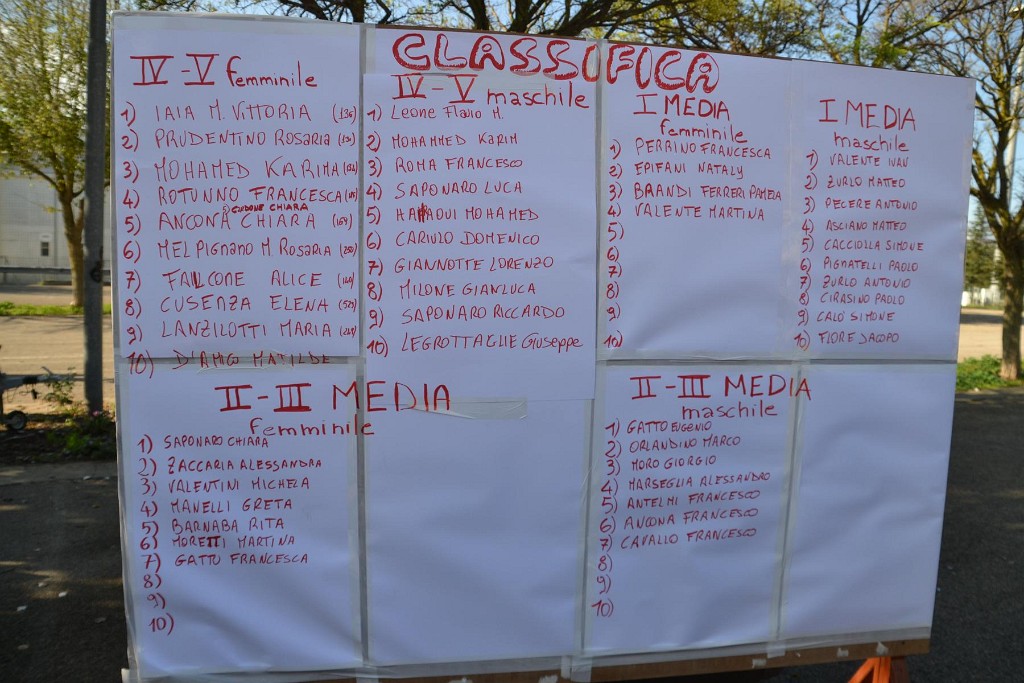 CLASSIFICA
IV - V femminile
1) IAIA M. VITTORIA (136)
2) PRUDENTINO ROSARIA
3) MOHAMED KARIMA
4) ROTUNNO FRANCESCA
GUIDONE CHIARA
5) ANCONA CHIARA (164)
6) MELPIGNANO M. ROSARIA
7) FALCONE ALICE
8) CUSENZA ELENA
9) LANZILOTTI MARIA
10) D'AMICO MATILDE
IV - V maschile
1) Leone Flavio M.
2) MOHAMMED KARIM
3) ROMA FRANCESCO
4) SAPONARO LUCA
5) MOHAMED
6) CARIULO DOMENICO
7) GIANNOTTE LORENZO
8) MILONE GIANLUCA
9) SAPONARO RICCARDO
10) LEGROTTAGLIE Giuseppe
I MEDIA
femminile
1) PERRINO FRANCESCA
2) EPIFANI NATALY
3) BRANDI FERRERI PAMELA
4) VALENTE MARTINA
5)
6)
7)
8)
9)
10)
I MEDIA
maschile
1) VALENTE IVAN
2) ZURLO MATTEO
3) PECERE ANTONIO
4) ASCIANO MATTEO
5) CACCIOLLA SIMONE
6) PIGNATELLI PAOLO
7) ZURLO ANTONIO
8) CIRASINO PAOLO
9) CALO' SIMONE
10) FIORE JACOPO
II - III MEDIA
femminile
1) SAPONARO CHIARA
2) ZACCARIA ALESSANDRA
3) VALENTINI MICHELA
4) MANELLI GRETA
5) BARNABA RITA
6) MORETTI MARTINA
7) GATTO FRANCESCA
8)
9)
10)
II - III MEDIA
maschile
1) GATTO EUGENIO
2) ORLANDINO MARCO
3) MORO GIORGIO
4) MARSEGLIA ALESSANDRO
5) ANTELMI FRANCESCO
6) ANCONA FRANCESCO
7) CAVALLO FRANCESCO
8)
9)
10)